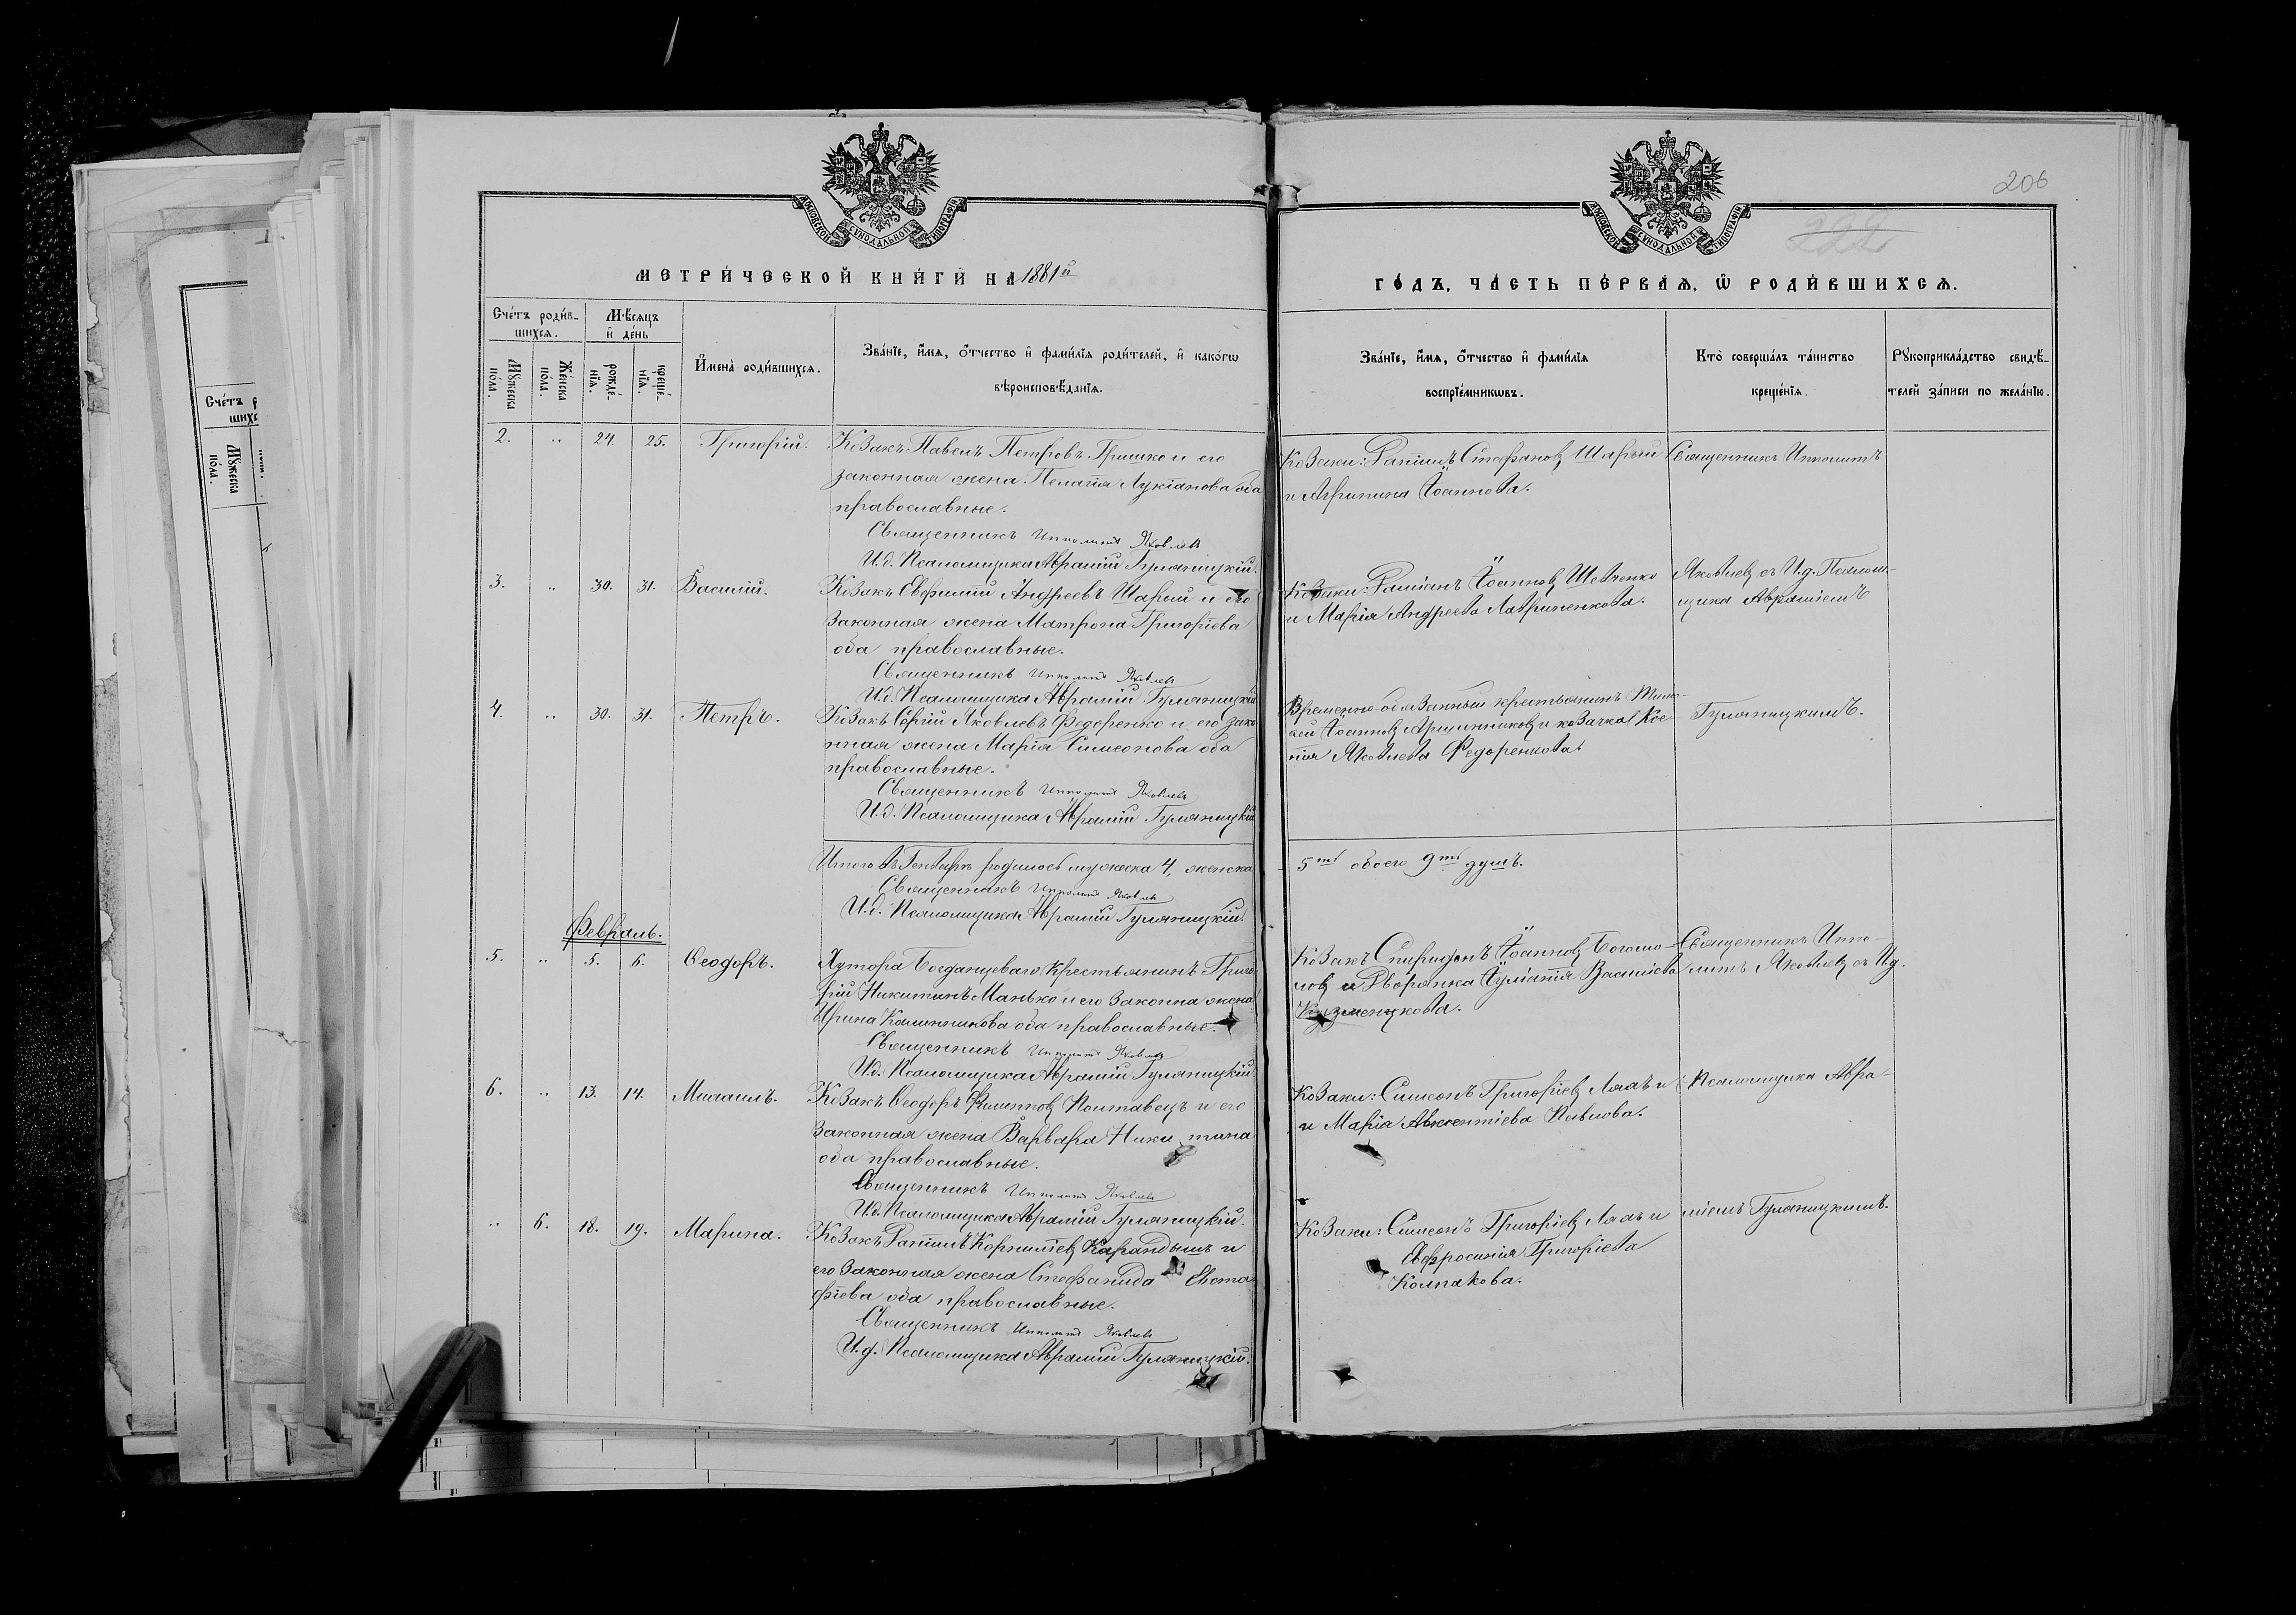 206
МОСКОВСКОЙ СѴНОДАЛЬНОЙ ТИПОГРАФІИ
МОСКОВСКОЙ СѴНОДАЛЬНОЙ ТИПОГРАФІИ
222
МЕТРИ́ЧЕСКОЙ КНИ́ГИ НА 1881й
ГО́ДЪ, ЧА́СТЬ ПЕ́РВАЯ, Ѡ РОДИ́ВШИХСЯ.
Сче́тъ роди́в-
шихся.
Мѣ́сяцъ
и де́нь
Мꙋ́жеска
по́ла.
Же́нска
по́ла.
рожде́-
нія.
креще́-
нія.
Имена̀ роди́вшихся.
Зва́ніе, и́мя, ѻ҆́тчество и фами́лія роди́телей, и како́гѡ
вѣроисповѣ́данія.
Зва́ніе, и́мя, ѻ҆́тчество и фами́лія
воспріе́мникѡвъ.
Кто̀ соверша́лъ та́инство
креще́нія.
Рꙋкоприкла́дство свидѣ́-
телей за́писи по жела́нію.
Сче́тъ р
шихс
Мꙋ́жеска
по́ла.
2. „ 24. 25. Григорій.
Козакъ Павелъ Петровъ Гришко и его
законная жена Пелагія Лукіанова оба
православные.
Священникъ Ипполитъ Яковлевъ
И.д. Псаломщика Аврамій Гуляницкій.
Козаки: Стефановъ Шарый
и Агрипина Іоаннова.
Священникъ Ипполитъ
3. „ 30. 31. Василій.
Козакъ Евфимій Андреевъ Шарий и его
законная жена Матрона Григоріева
оба православные.
Священникъ Ипполитъ Яковлевъ
И.д. Псаломщика Аврамій Гуляницкій
Козаки: Іоанновъ Шевченко
и Марія Андреева Лавриненкова.
Яковлевъ съ И.д. Псалом-
щика Авраміемъ
4. „ 30. 31. Петръ.
Козакъ Сергій Яковлевъ Федоренко и его зако-
нная жена Марія Симеонова оба
православные.
Священникъ Ипполитъ Яковлевъ
И.д. Псаломщика Аврамій Гуляницкій
Временно-обязанный крестьянинъ
Іоанновъ и козачка Ксе-
нія Яковлева Федоренкова.
Гуляницкимъ.
Итого въ Генварѣ родилось мужеска 4, женска
5ть обоего 9ть душъ.
Священникъ Ипполитъ Яковлевъ
И.д. Псаломщика Аврамій Гуляницкій.
Февраль.
5. „ 5. 6. Ѳеодоръ.
Хутора Богданцеваго, Крестьянинъ Григо-
рій Никитинъ Манько и его законна жена
Ирина Калинникова оба православные.
Священникъ Ипполитъ Яковлевъ
И.д. Псаломщика Аврамій Гуляницкій.
Козакъ Спиридонъ Іоанновъ Богомо-
ловъ и Дворянка Іуліанія Васильева
Кузменкова.
Священникъ Иппо-
литъ Яковлевъ съ И.д.
6. „ 13. 14. Михаилъ.
Козакъ Ѳеодоръ Филиповъ Полтавецъ и его
законная жена Варвара Никитина
оба православные.
Священникъ Ипполитъ Яковлевъ
И.д. Псаломщика Аврамій Гуляницкій.
Козаки: Симеонъ Григоріевъ и
и Марія Авксентіева Павлова.
Псаломщика Авра-
„ 6. 18. 19. Марина.
Козакъ Корниліевъ Карандышъ и
его законная жена Стефанида Евста-
фіева оба православные.
Священникъ Ипполитъ Яковлевъ
И.д. Псаломщика Аврамій Гуляницкій.
Козаки: Симеонъ Григоріевъ и
Евфросинія Григоріева
Колпакова.
міемъ Гуляницкимъ.